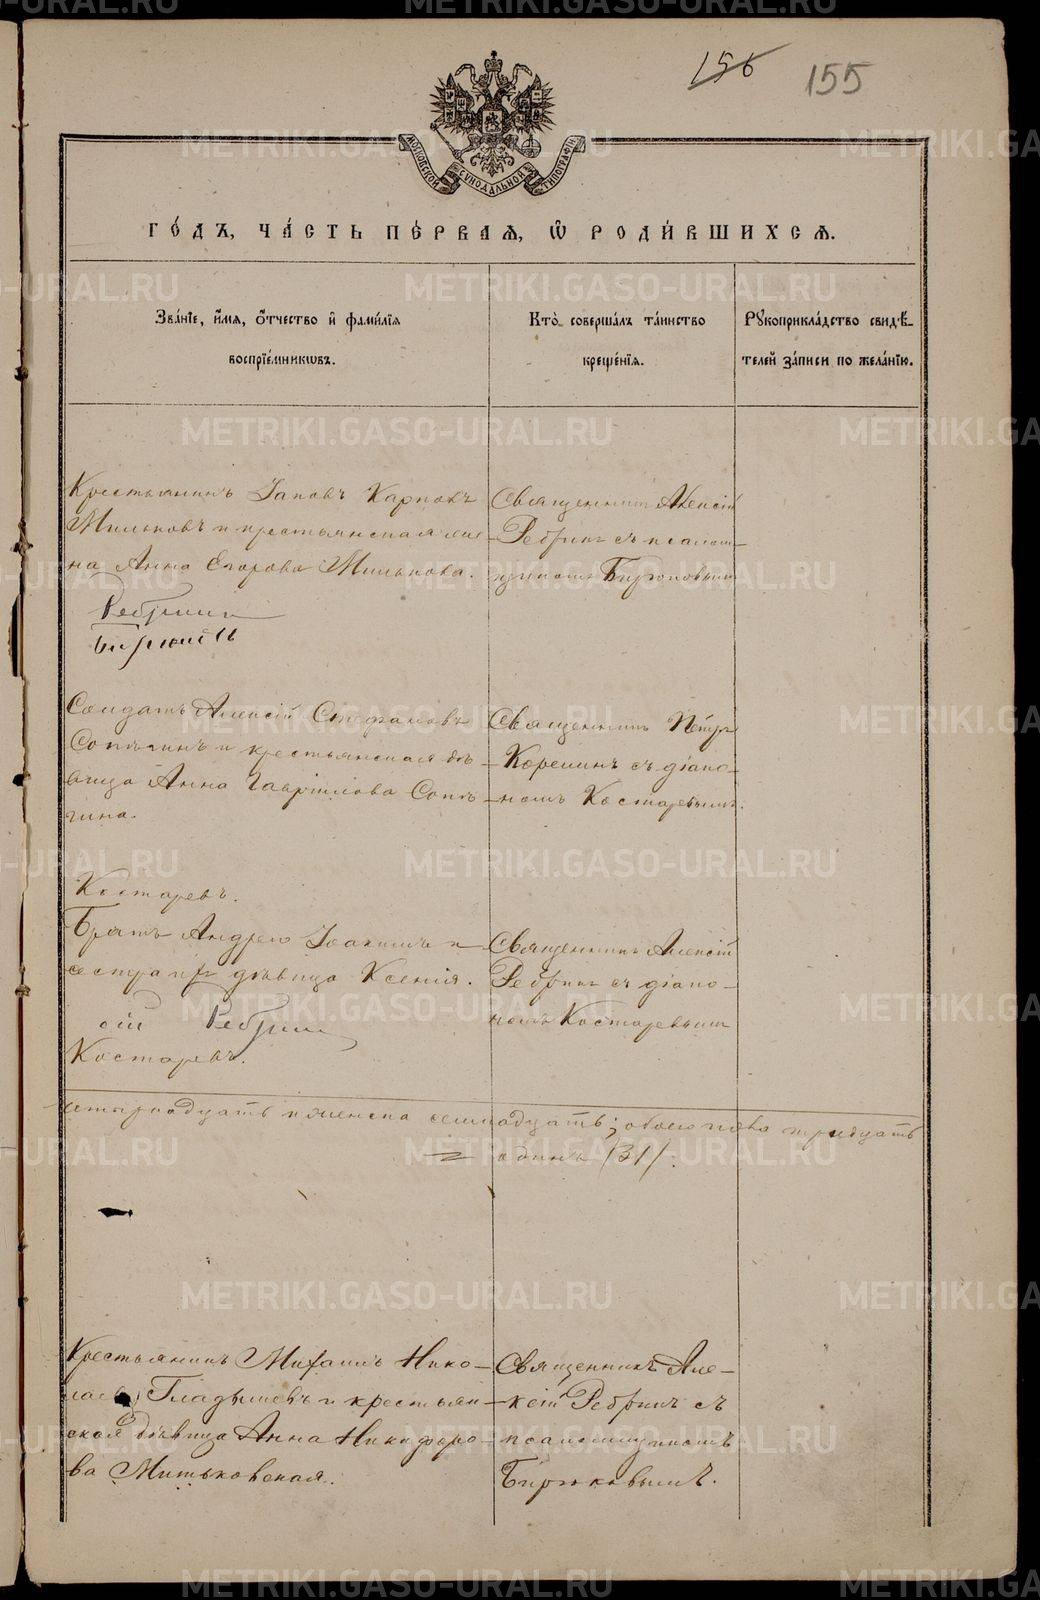 156 155
МОСКОВСКОЙ СѴНОДАЛЬНОЙ ТИПОГРАФІИ
го́дъ, ча́сть пе́рваѧ, ѡ҆ роди́вшихсѧ.
Зва́нїе, и҆́мѧ, ѻ҆́тчество и҆ фами́лїѧ
воспрїе́мникѡвъ.
Кто̀ соверша́лъ та́инство
креще́нїѧ.
Рꙋкоприкла́дство свидѣ́-
телей за́писи по жела́нїю.
Крестьянинъ Іаковъ Карповъ
Мильковъ и крестьянская же-
на Анна Егорова Милькова.
Ребринъ
Священникъ Алексій
Ребринъ съ псалом-
щикомъ Бирюковымъ
Солдатъ Алексій Стефановъ
Сопыгинъ и крестьянская дѣ-
вица Анна Гавріилова Сопы-
гина.
Священникъ Петръ
Корелинъ съ діако-
номъ Костаревымъ.
Костаревъ.
Братъ Андрею Іоакимъ и
сестра их дѣвица Ксенія.
сій Ребринъ
Костаревъ.
Священникъ Алексій
Ребринъ съ діако-
номъ Костаревымъ
етырнадцать и женска семнадцать; обоего пола тридцать
одинъ /31/.
Крестьянинъ Михаилъ Нико-
лаевъ Гладышевъ и крестьян-
ская дѣвица Анна Никифоро-
ва Митьковская.
Священникъ Але-
ксій Ребринъ съ
псаломщикомъ
Бирюковымъ.